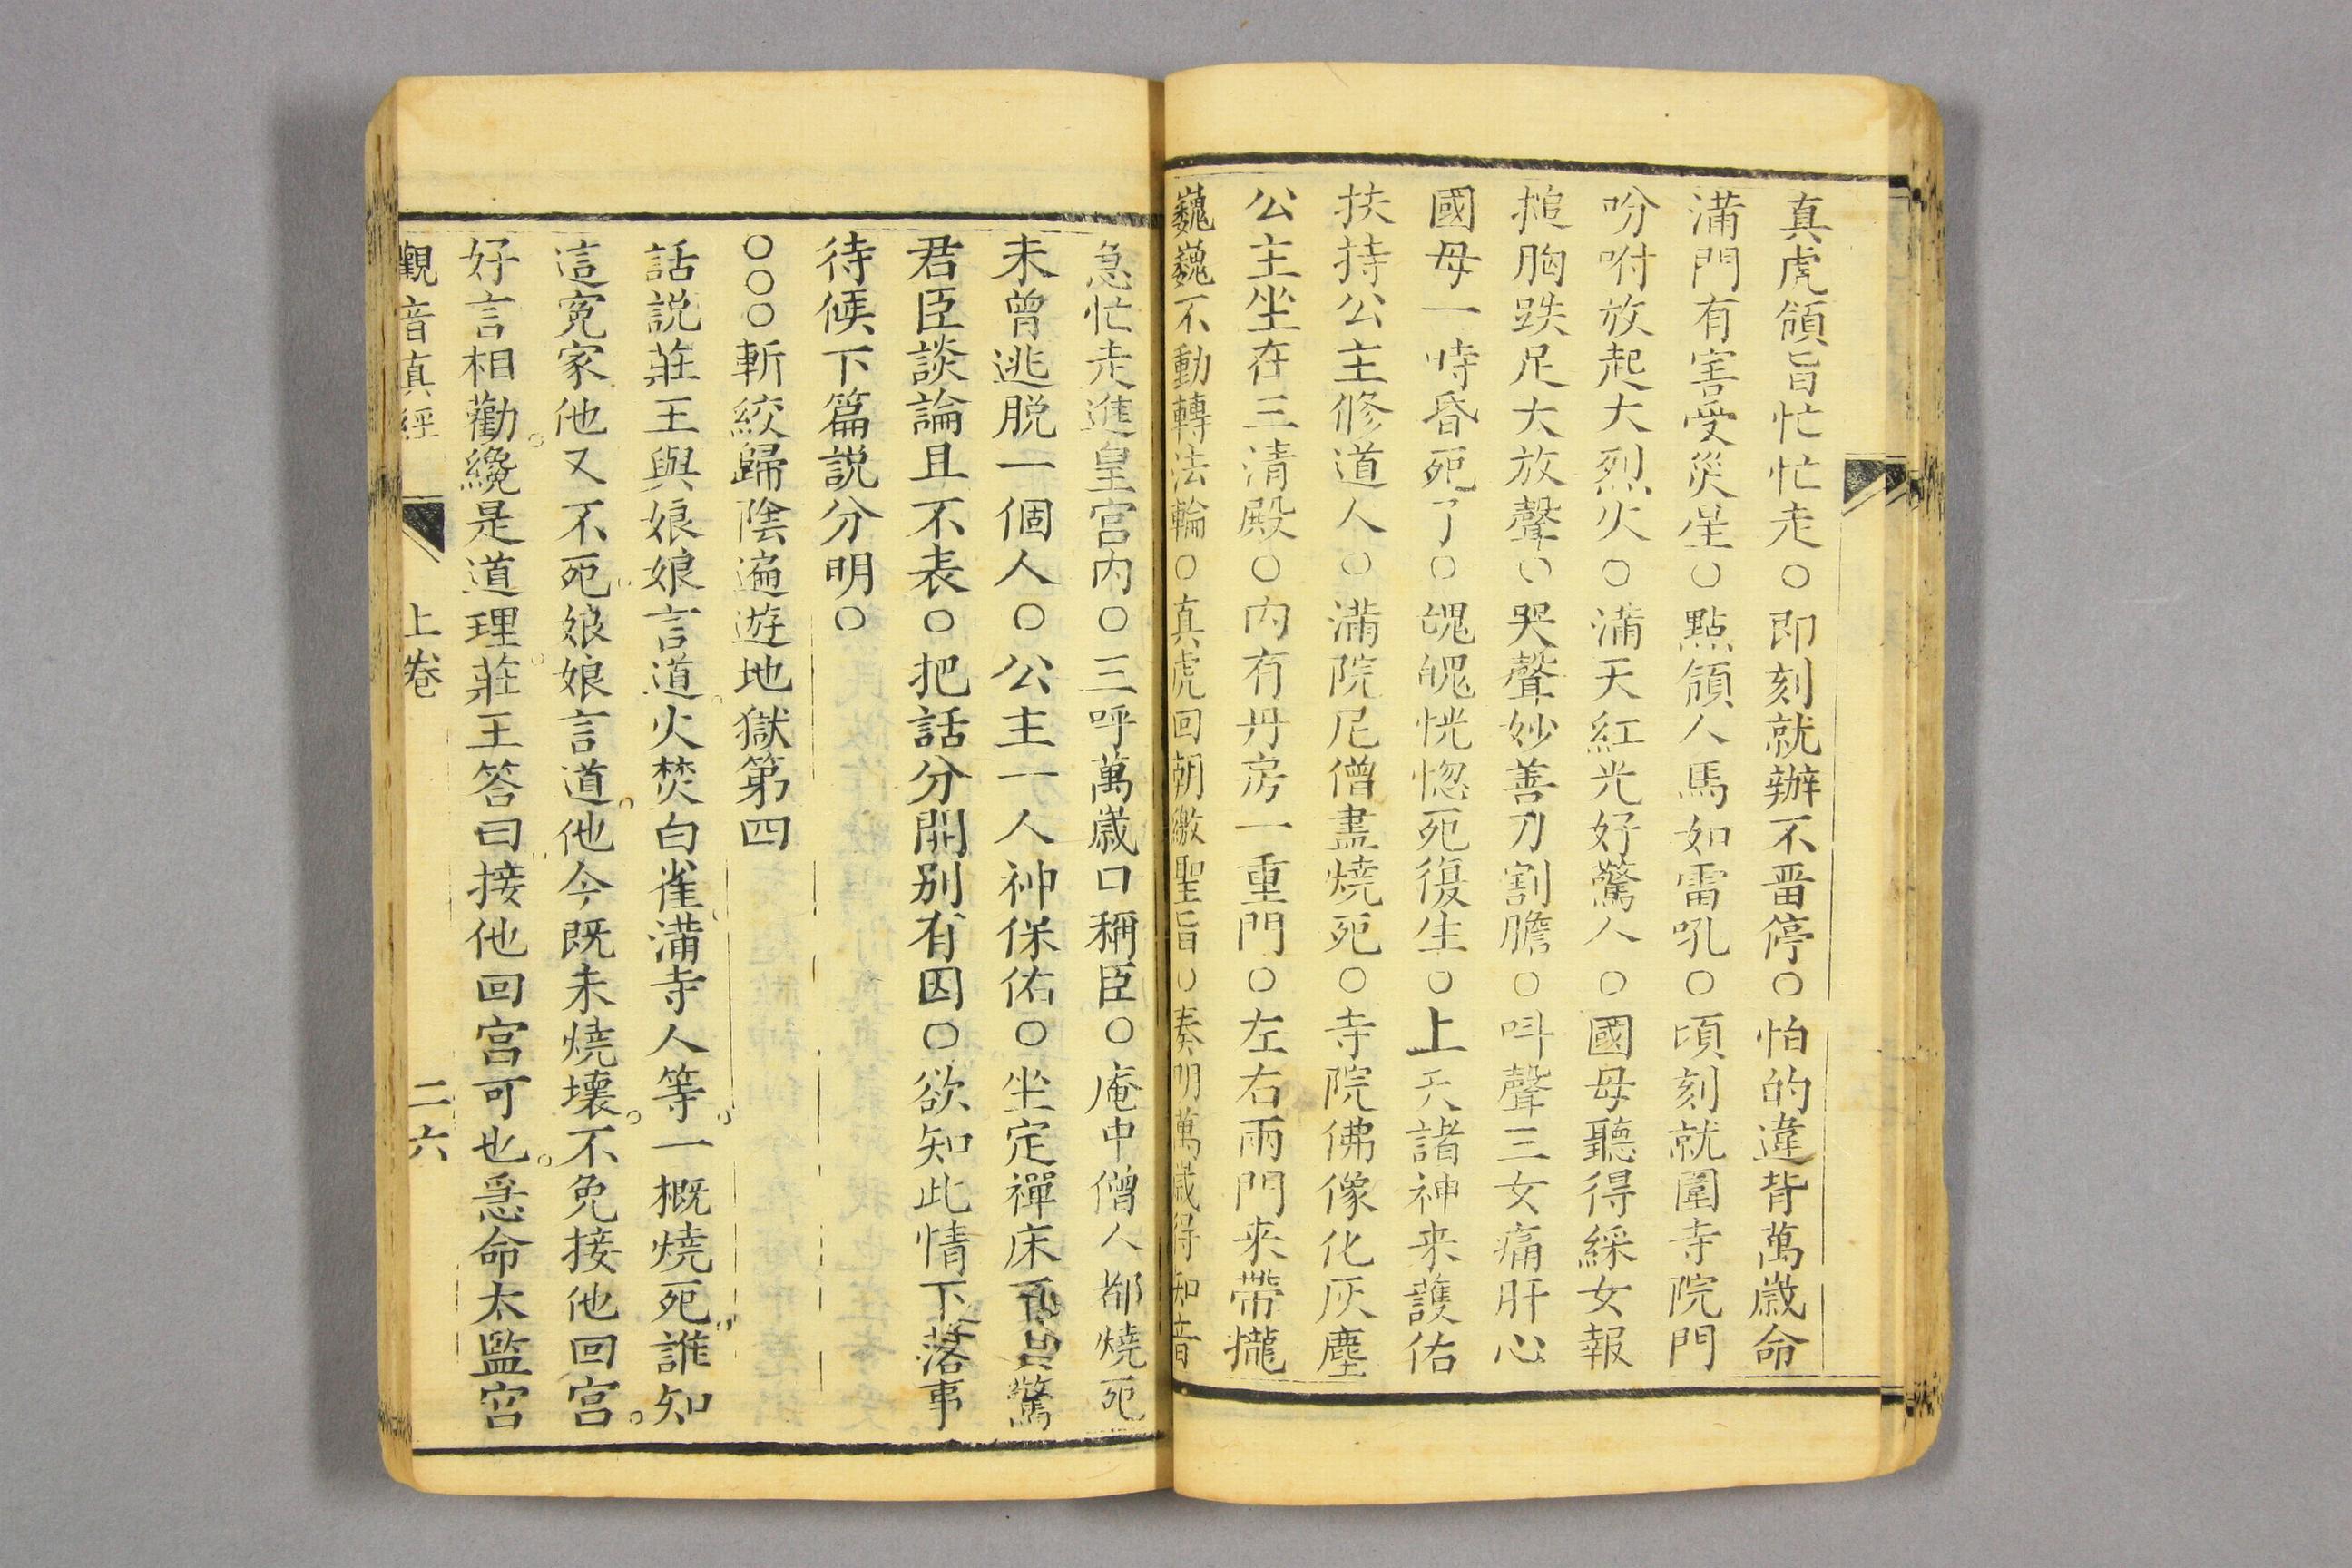 真虎領旨忙忙走○即刻就辦不畱停○怕的違背萬歲命
滿門有害受災星○點領人馬如雷吼○頃刻就圍寺院門
吩咐放起大烈火○滿天紅光好驚人○國母聽得綵女報
搥胸跌足大放聲○哭聲妙善刀割膽○呌聲三女痛肝心
國母一時昏死了○魄魄恍惚死復生○上天諸神来護佑
扶持公主修道人○滿院尼僧盡燒死○寺院佛像化灰塵
公主坐在三清殿○內有丹房一重門○左右兩門来帶攏
巍巍不動轉法輪○真虎回朝繳聖旨○奏明萬歲得知音
急忙走進皇宮内○三呼萬歲口稱臣○庵中僧人都燒死
未曾逃脱一個人○公主一人神保佑○坐定禪床驚
君臣談論且不表○把話分開别有因○欲知此情下落事
待候下篇説分明○
○○○斬絞歸陰遍遊地獄第四
話説莊王與娘娘言道火焚白雀滿寺人等一概燒死誰知
這寃家他又不死娘娘言道他今既未燒壞不免接他回宮
好言相勸纔是道理莊王答曰接他回宮可也急命太監宮
觀音真經 上卷 二六